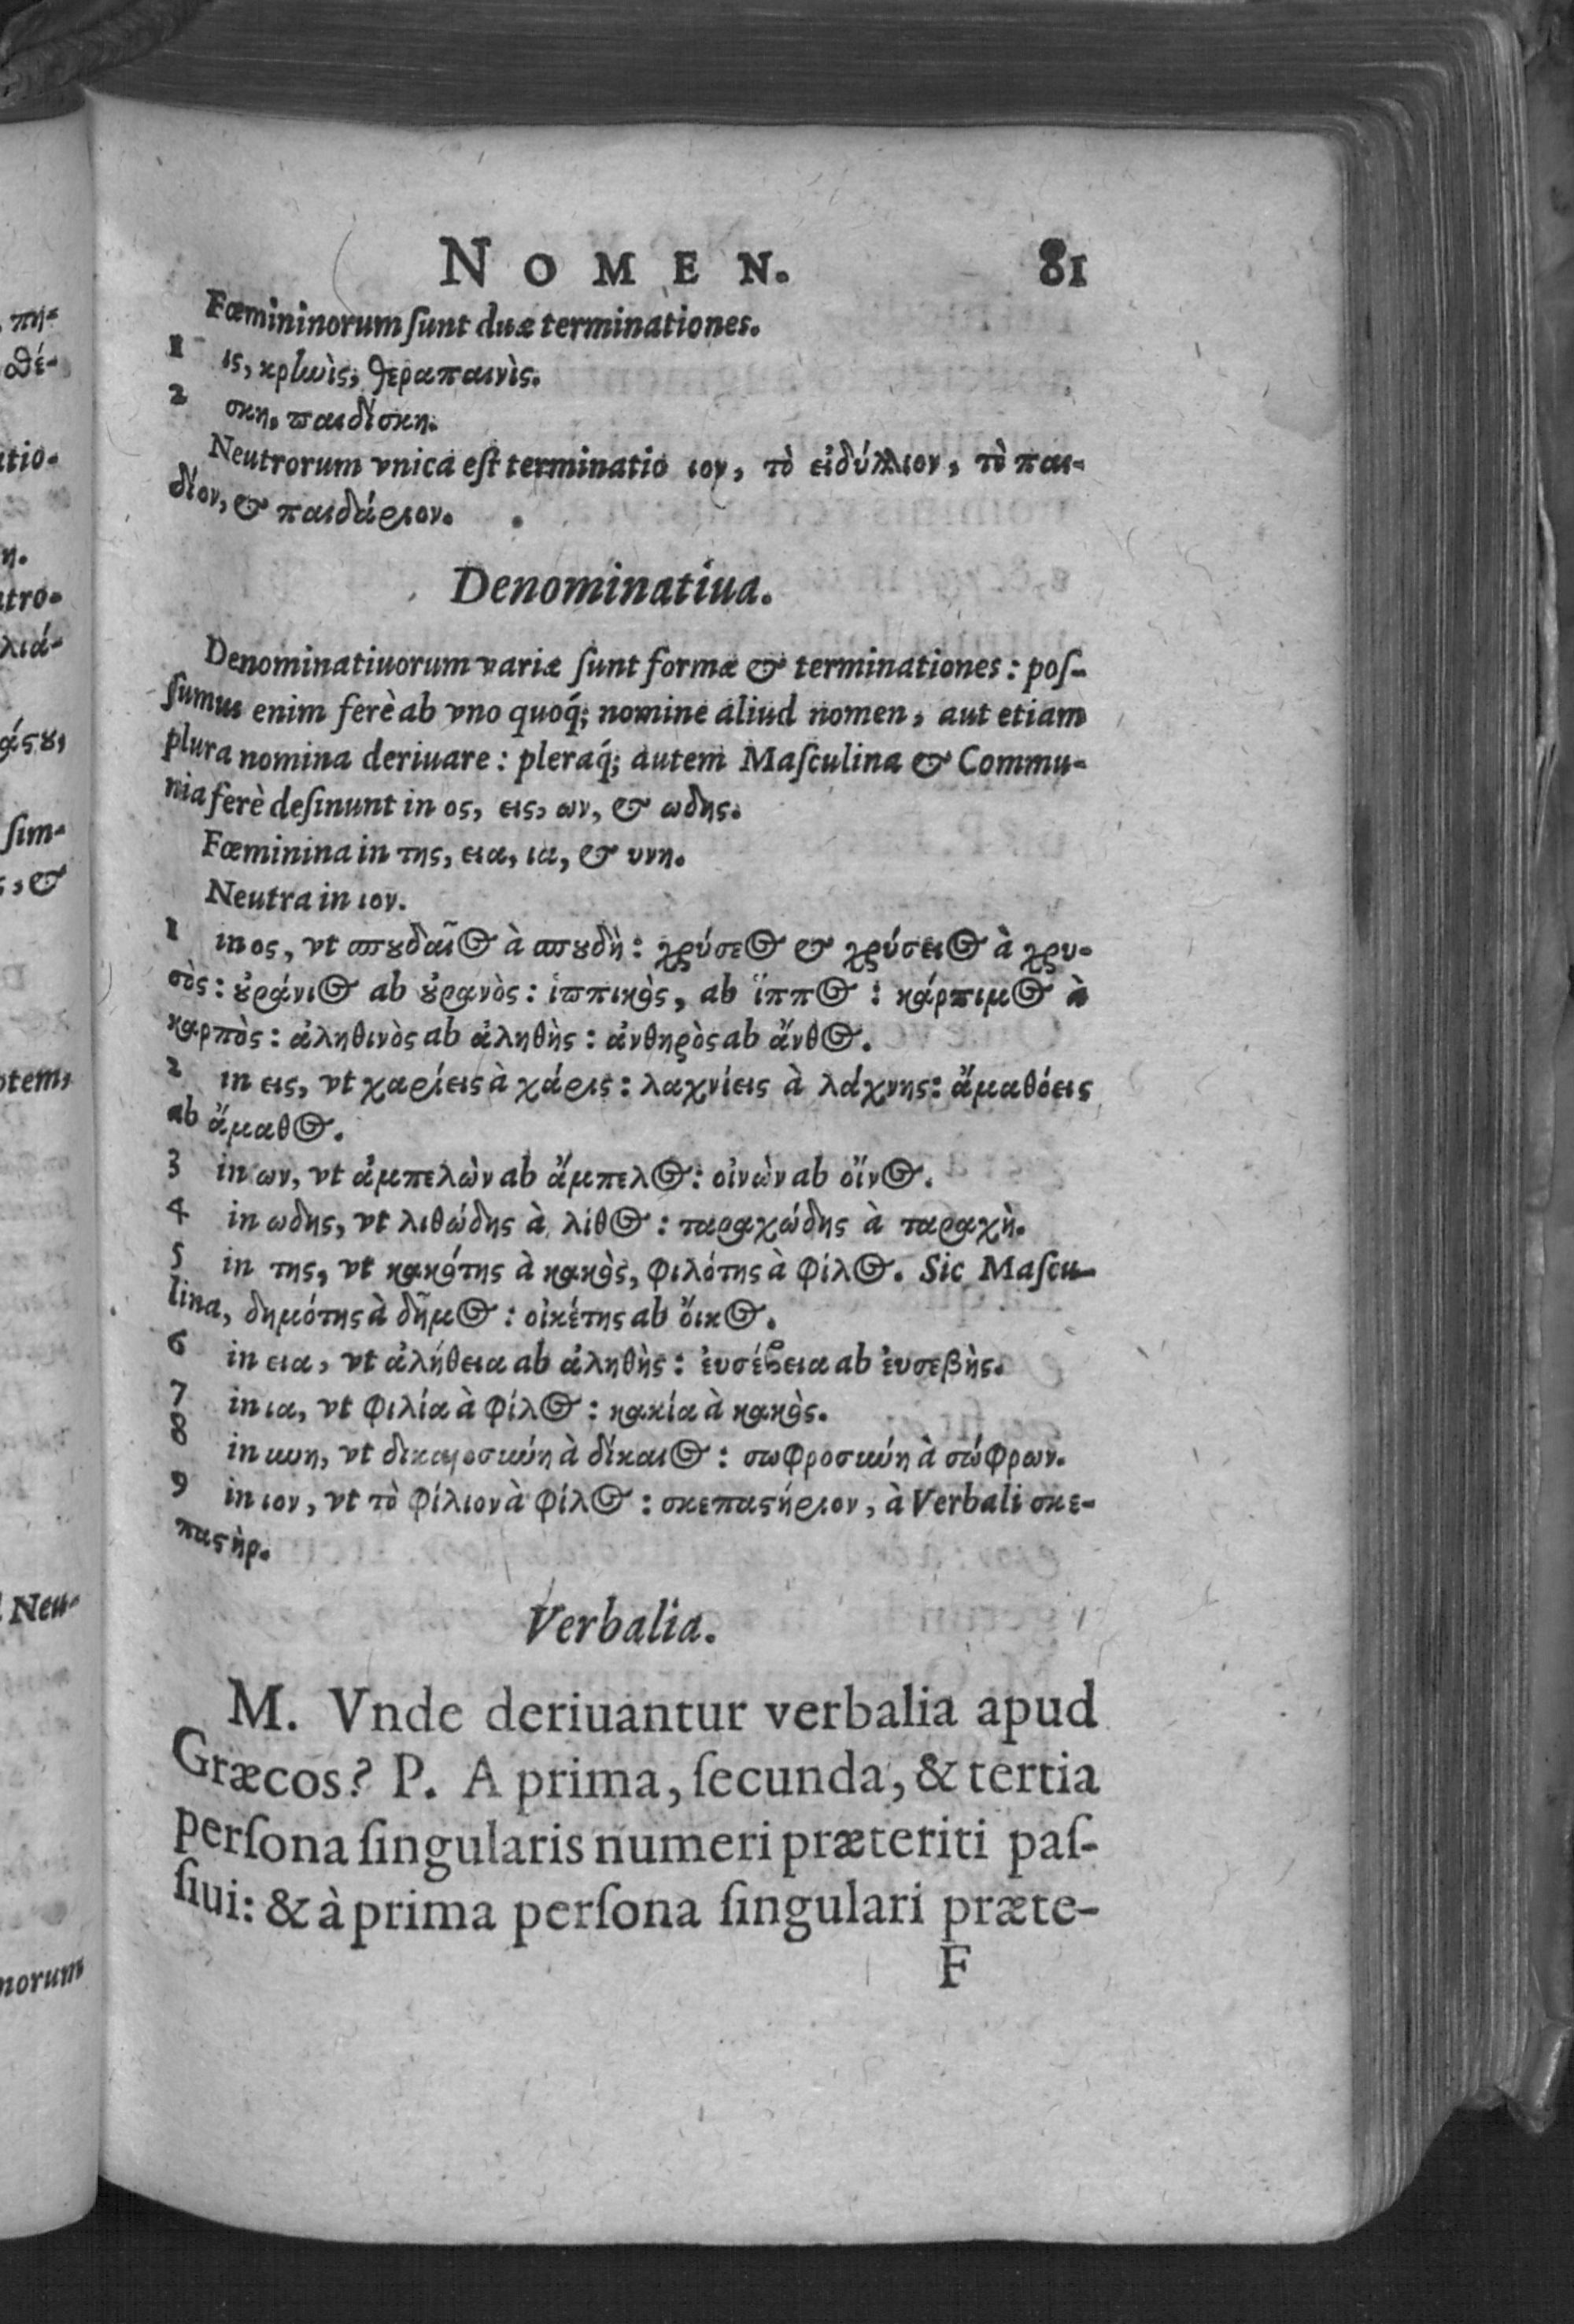 NOMEN. 81
Fœmininorum ſunt duæ terminationes.
1 ις, κρηνὶς, θεραπαινὶς.
2 σκη, παιδίσκη.
Neutrorum vnica eſt terminatio ιον, τὸ εἰδύλλιον, τὸ παι-
δίον, & παιδάριον.
Denominatiua.
Denominatiuorum variæ ſunt formæ & terminationes: poſ-
ſumus enim ferè ab vno quoq́; nomine aliud nomen, aut etiam
plura nomina deriuare: pleraq́; autem Maſculina & Commu-
nia ferè deſinunt in ος, εις, ων, & ωδης.
Fœminina in της, εια, ια, & υνη.
Neutra in ιον.
1 in ος, vt σπουδαῖος à σπουδὴ: χρύσεος & χρύσειος à χρυ-
σὸς: οὐράνιος ab οὐρανὸς: ἱππικὸς, ab ἵππος: κάρπιμος à
καρπὸς: ἀληθινὸς ab ἀληθὴς: ἀνθηρὸς ab ἄνθος.
2 in εις, vt χαρίεις à χάρις: λαχνίεις à λάχνης: ἄμαθόεις
ab ἄμαθος.
3 in ων, vt ἀμπελὼν ab ἄμπελος: οἰνὼν ab οἴνος.
4 in ωδης, vt λιθώδης à λίθος: ταραχώδης à ταραχὴ.
5 in της, vt κακότης à κακὸς, φιλότης à φίλος. Sic Maſcu-
lina, δημότης à δῆμος: οἰκέτης ab ὄικος.
6 in εια, vt ἀλήθεια ab ἀληθὴς: ἐυσέβεια ab ἐυσεβὴς.
7 in ια, vt φιλία à φίλος: κακία à κακὸς.
8 in υνη, vt δικαιοσύνη à δίκαιος: σωφροσύνη à σώφρων.
9 in ιον, vt τὸ φίλιον à φίλος: σκεπαστήριον, à Verbali σκε-
παστὴρ.
Verbalia.
M. Vnde deriuantur verbalia apud
Græcos? P. A prima, ſecunda, & tertia
perſona ſingularis numeri præteriti paſ-
ſiui: & à prima perſona ſingulari præte-
F